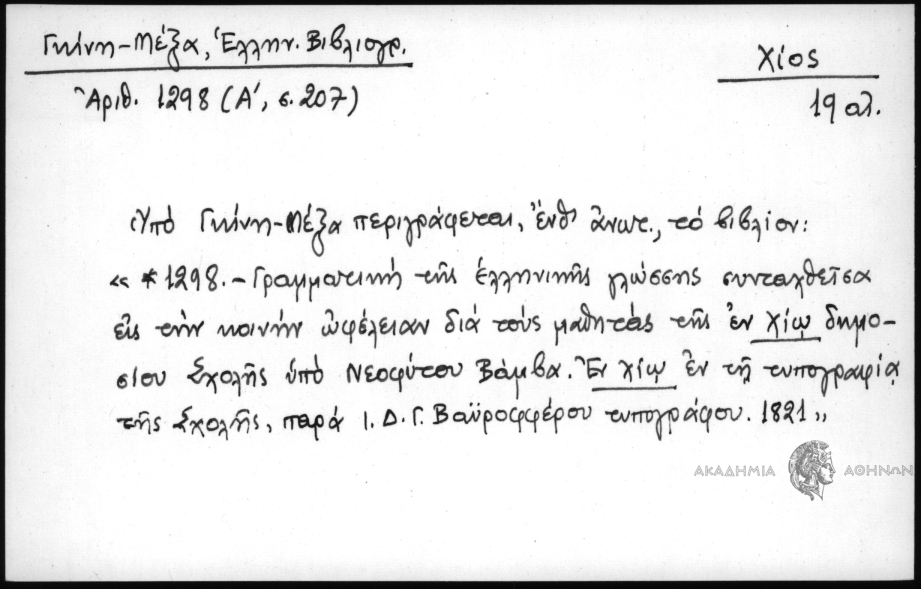 Γκίνη-Μέξα, Ἑλλην. Βιβλιογρ.
Ἀριθ. 1298 (Α', σ. 207)
Χίος
19 αἰ.
Ὑπό Γκίνη-Μέξα περιγράφεται, ἔνθ' ἄνωτ., τό βιβλίον:
« * 1298. – Γραμματική τῆς ἑλληνικῆς γλώσσης συνταχθεῖσα
εἰς τήν κοινήν ὠφέλειαν διά τούς μαθητάς τῆς ἐν Χίῳ δημο-
σίου Σχολῆς ὑπό Νεοφύτου Βάμβα. Ἐν Χίῳ ἐν τῇ τυπογραφίᾳ
τῆς Σχολῆς, παρά Ι. Δ. Γ. Βαϋροφφέρου τυπογράφου. 1821 »
ΑΚΑΔΗΜΙΑ ΑΘΗΝΩΝ